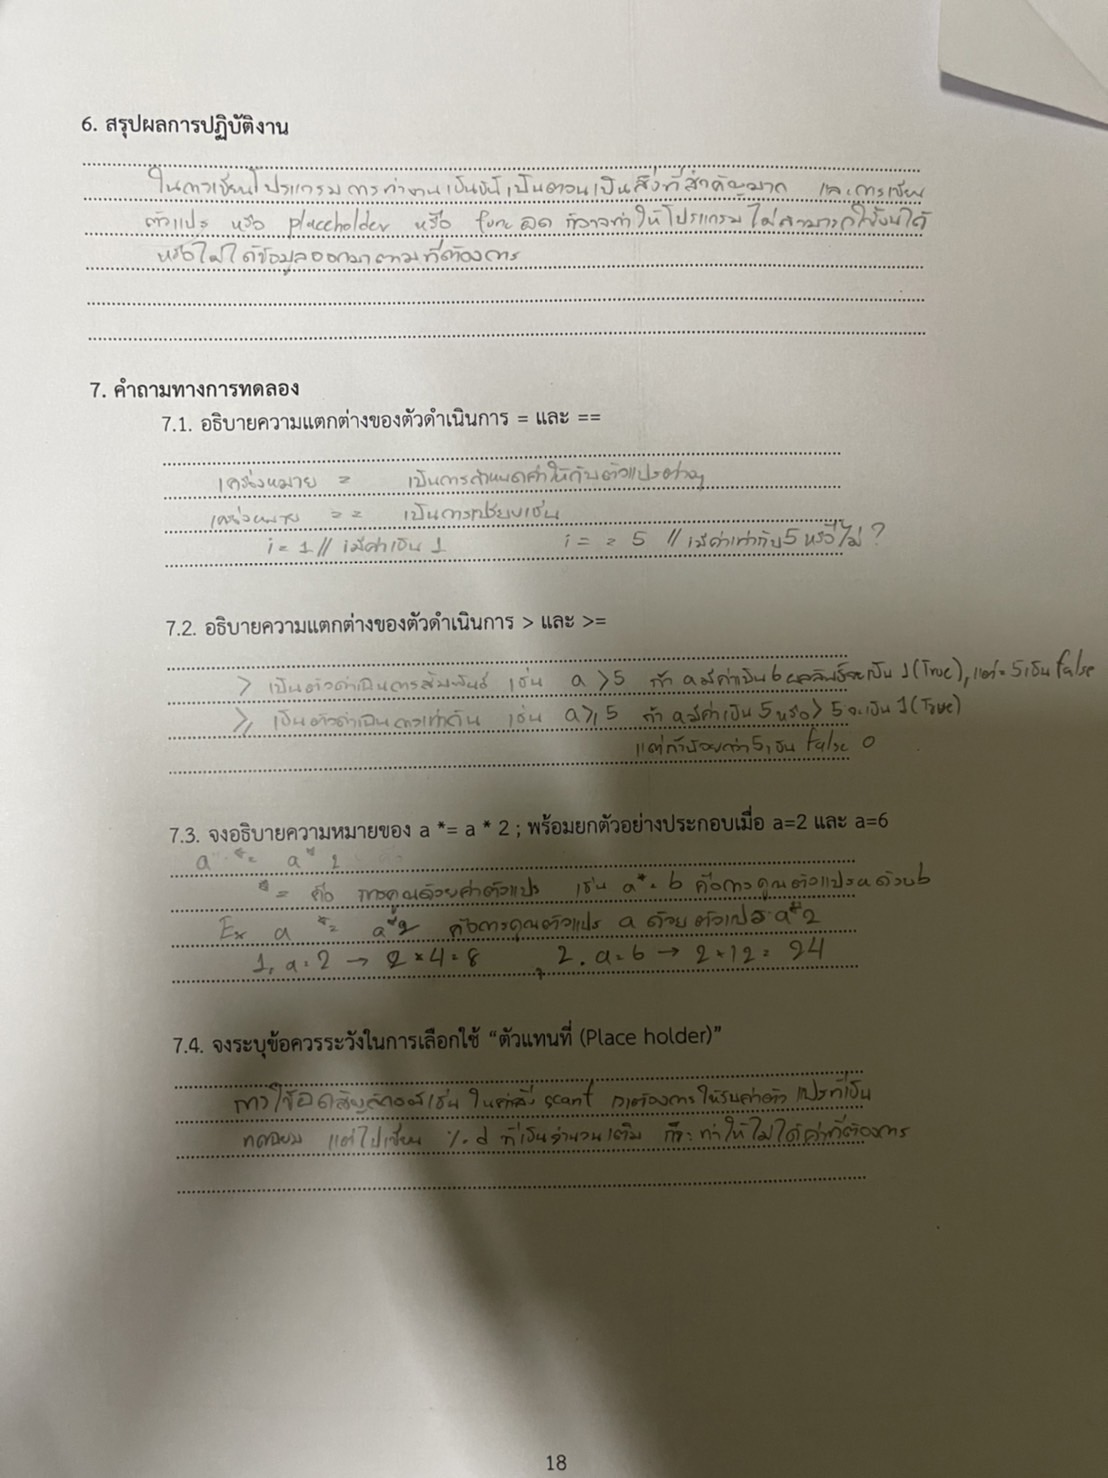 6. สรุปผลการปฏิบัติงาน
ในการเขียนโปรแกรม การทำงานเป็นขั้นเป็นตอนเป็นสิ่งที่สำคัญมาก และการเขียน
ตัวแปร หรือ placeholder หรือ ก็อาจทำให้โปรแกรมไม่สามารถใช้งานได้
หรือไม่ได้ข้อมูลออกมาตามที่ต้องการ
7. คำถามทางการทดลอง
7.1. อธิบายความแตกต่างของตัวดำเนินการ = และ ==
เครื่องหมาย = เป็นการกำหนดค่าให้กับตัวแปรต่างๆ
เครื่องหมาย == เป็นการเปรียบเช่น
i = 1 // iมีค่าเป็น 1 i == 5 // iมีค่าเท่ากับ5 หรือไม่ ?
7.2. อธิบายความแตกต่างของตัวดำเนินการ > และ >=
> เป็นตัวดำเนินการสัมพันธ์ เช่น a > 5 ถ้า aมีค่าเป็น 6 ผลลัพธ์จะเป็น 1(True), แต่= 5เป็น false
≥ เป็นตัวดำเนินการเท่ากับ เช่น a ≥ 5 ถ้า aมีค่าเป็น 5 หรือ > 5 จะเป็น 1(True)
แต่ถ้าน้อยกว่า5เป็น false 0
7.3. จงอธิบายความหมายของ a *= a * 2 ; พร้อมยกตัวอย่างประกอบเมื่อ a=2 และ a=6
a *= a * 2
*= คือ การคูณด้วยค่าตัวแปร เช่น a *= b คือการคูณตัวแปรaด้วยb
Ex a *= a*2 คือการคูณตัวแปร a ด้วย ตัวแปร a*2
1. a=2 → 2*4=8 , 2. a=6 → 2*12= 24
7.4. จงระบุข้อควรระวังในการเลือกใช้ “ตัวแทนที่ (Place holder)”
การใช้ เช่น ในคำสั่ง scanf เราต้องการให้รับค่าตัวแปรที่เป็น
ทศนิยม แต่ไปเขียน %d ที่เป็นจำนวนเต็ม ก็จะทำให้ไม่ได้ค่าที่ต้องการ
18